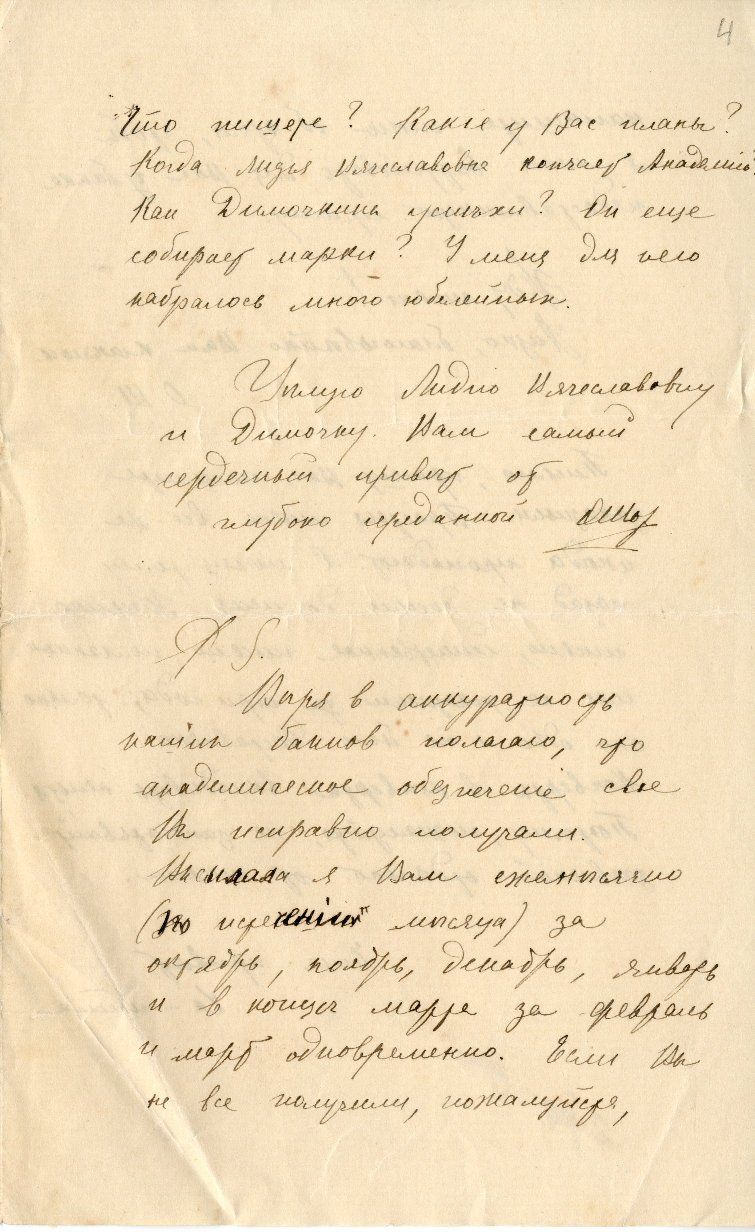 4
Что пишете? Какіе у Вас планы?
Когда Лидья Вячеславовна кончает Академію?
Как Димочкины успѣхи? Он еще
собирает марки? У меня для него
набралось много юбилейных.
Цѣлую Лидію Вячеславовну
и Димочку. Вам самый
сердечный привѣт от
глубоко преданной ОШор
P. S.
Вѣря в аккуратность
наших банков полагаю, что
академическое обезпеченіе свое
Вы исправно получали.
Высылала я Вам ежемѣсячно
(по истеченіи мѣсяца) за
октябрь, ноябрь, декабрь, январь
и в концѣ марта за февраль
и март одновременно. Если Вы
не все получили, пожалуйста,